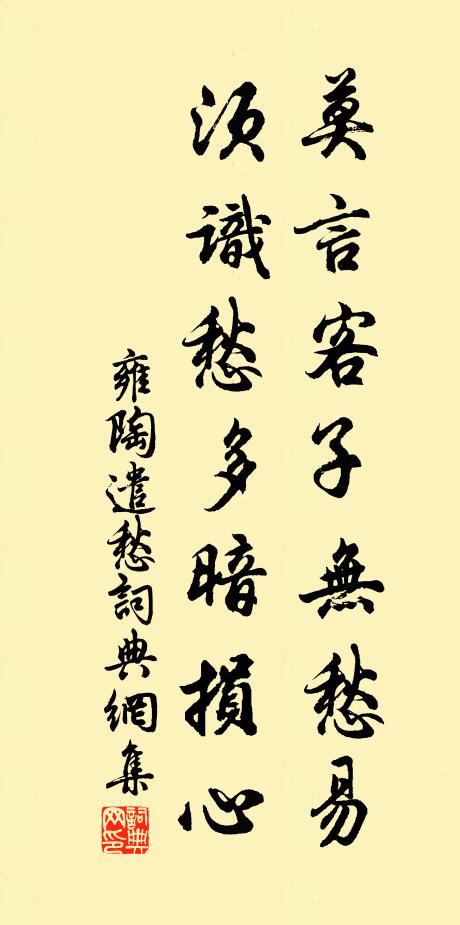 莫言客子無愁易
須識愁多暗損心
雍陶遣愁詞典網集
詞典網印